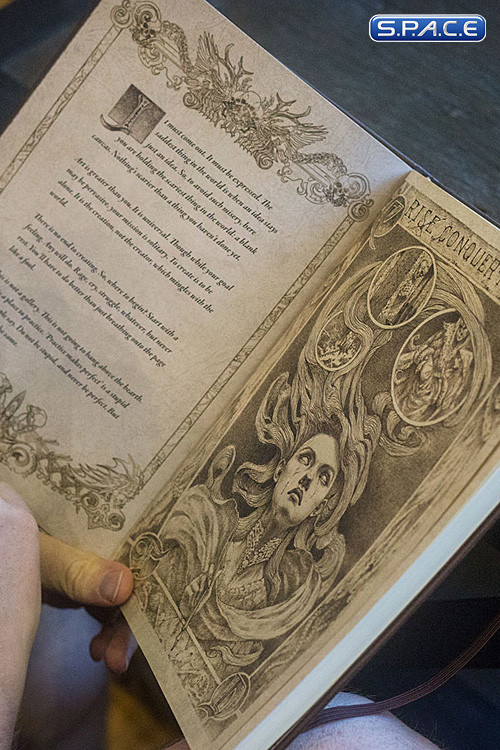 S.P.A.C.E
I must come out. It must be expressed. The
saddest thing in the world is when an idea stays
just an idea. So, to avoid such misery, here
you are holding the scariest thing in the world: a blank
canvas. Nothing's scarier than a thing you haven't done yet.
Art is greater than you. It is universal. Though while your goal
may be pervasive, your mission is solitary. To create is to be
alone. It is the creation, not the creator, which mingles with the
world.
There is no end to creating. So, where to begin? Start with a
feeling. Any will do. Rage, cry, struggle, whatever, but never
rest. You'll have to do better than just breathing onto the page
like a fool.
is not a gallery. This is not going to hang above the hearth.
a place to practice. 'Practice makes perfect' is a stupid
say. Dare to be stupid, and never be perfect. But
same.
RISE CONQUER